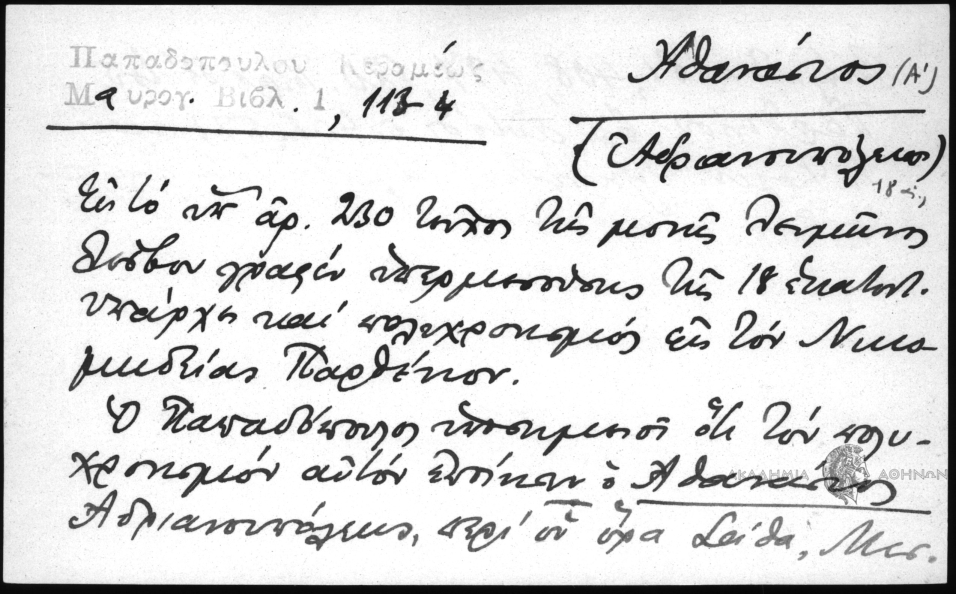 Παπαδοπουλου Κεραμέως
Μαυρογ. Βιβλ. 1, 113-4
Ἀθανάσιος (Α')
(Ἀδριανουπόλεως)
18 αἰ.
Εἰς τό ὑπ' ἀρ. 230 τῆς μονῆς Λειμῶνος
Λέσβου γραφέν ὑπερμεσούσης τῆς 18 ἑκατοντ.
ὑπάρχει καί πολυχρονισμός εἰς τόν Νικο-
μηδείας Παρθένιον.
Ὁ Παπαδόπουλος ὑποσημειοῖ ὅτι τόν πολυ-
χρονισμόν αὐτόν ἐποίησεν ὁ Ἀθανάσιος
Ἀδριανουπόλεως, περί οὗ ὅρα Σάθα, Μεσ.
ΑΚΑΔΗΜΙΑ ΑΘΗΝΩΝ